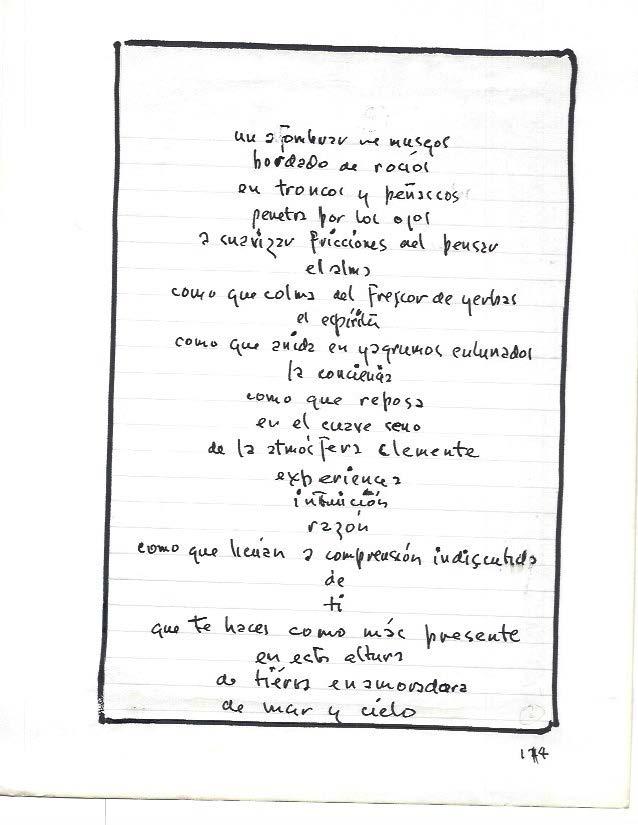 un alfombrar de musgos
bordado de rocíos
en troncos y peñascos
penetra por los ojos
a suavizar fricciones del pensar
el alma
como que colma del frescor de yerbas
el espíritu
como que anida en yagrumos enlunados
la conciencia
como que reposa
en el suave seno
de la atmósfera clemente
experiencia
intuición
razón
como que llevan a comprensión indiscutida
de
ti
que te haces como más presente
en esta altura
de tierra enamoradora
de mar y cielo
174